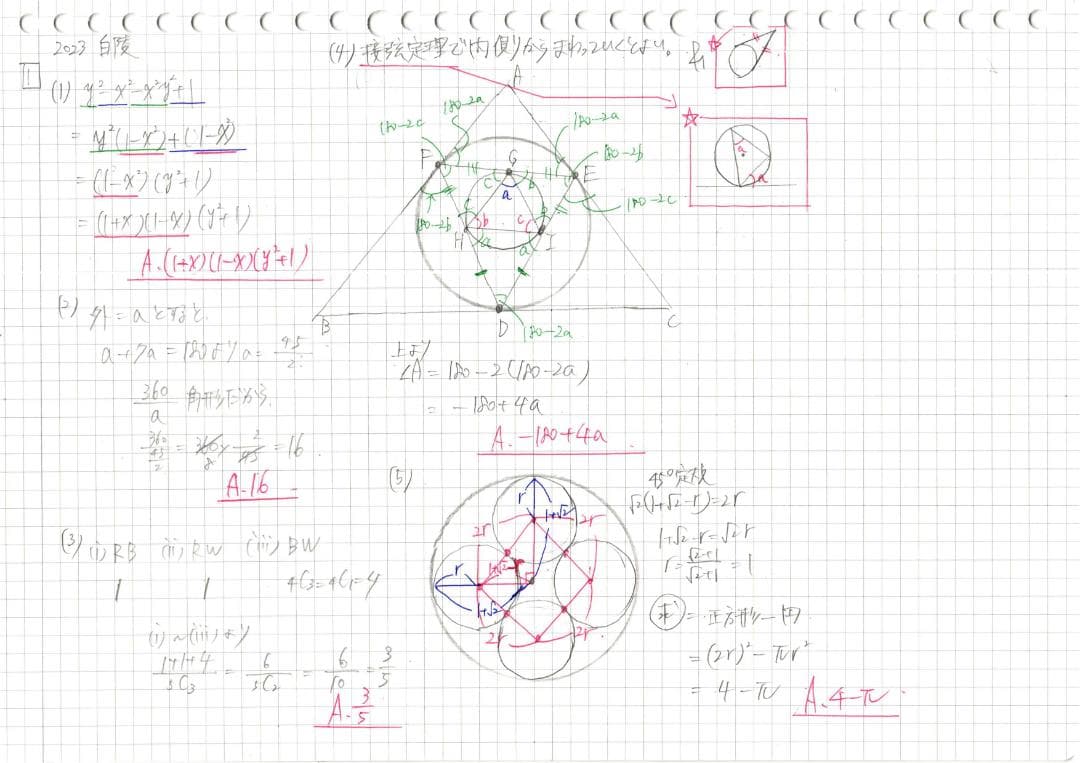 2023 白陵
1
(1) y²-x²-x²y²+1
= y²(1-x²)+(1-x²)
= (1-x²)(y²+1)
= (1+x)(1-x)(y²+1)
A.(1+x)(1-x)(y²+1)
(2) 外=aとすると
a+7a=180よりa=45/2
360/a 角形だから
360/(45/2) = 360×2/45 = 16
8
A.16
(3) (i) RB (ii) RW (iii) BW
1 1 4C3=4C1=4
(i)~(iii)より
(1+1+4)/5C3 = 6/5C2 = 6/10 = 3/5
A.3/5
(4) 接弦定理で内側からまわっていくとよい。
☆
☆
a
2a
A
180-2a
180-2c
180-2a
180-2b
F
G
E
c
b
a
180-2c
180-2b
c
b
b
c
H
I
a
a
B
D
C
180-2a
上より
∠A=180-2(180-2a)
= -180+4a
A.-180+4a
(5)
r
1+√2
2r
2r
r
1+√2
r
1+√2
2r
2r
45°定規
√2(1+√2-r)=2r
1+√2-r=√2r
r=(√2+1)/(√2+1)=1
求 = 正方形-円
= (2r)²-πr²
= 4-π
A.4-π